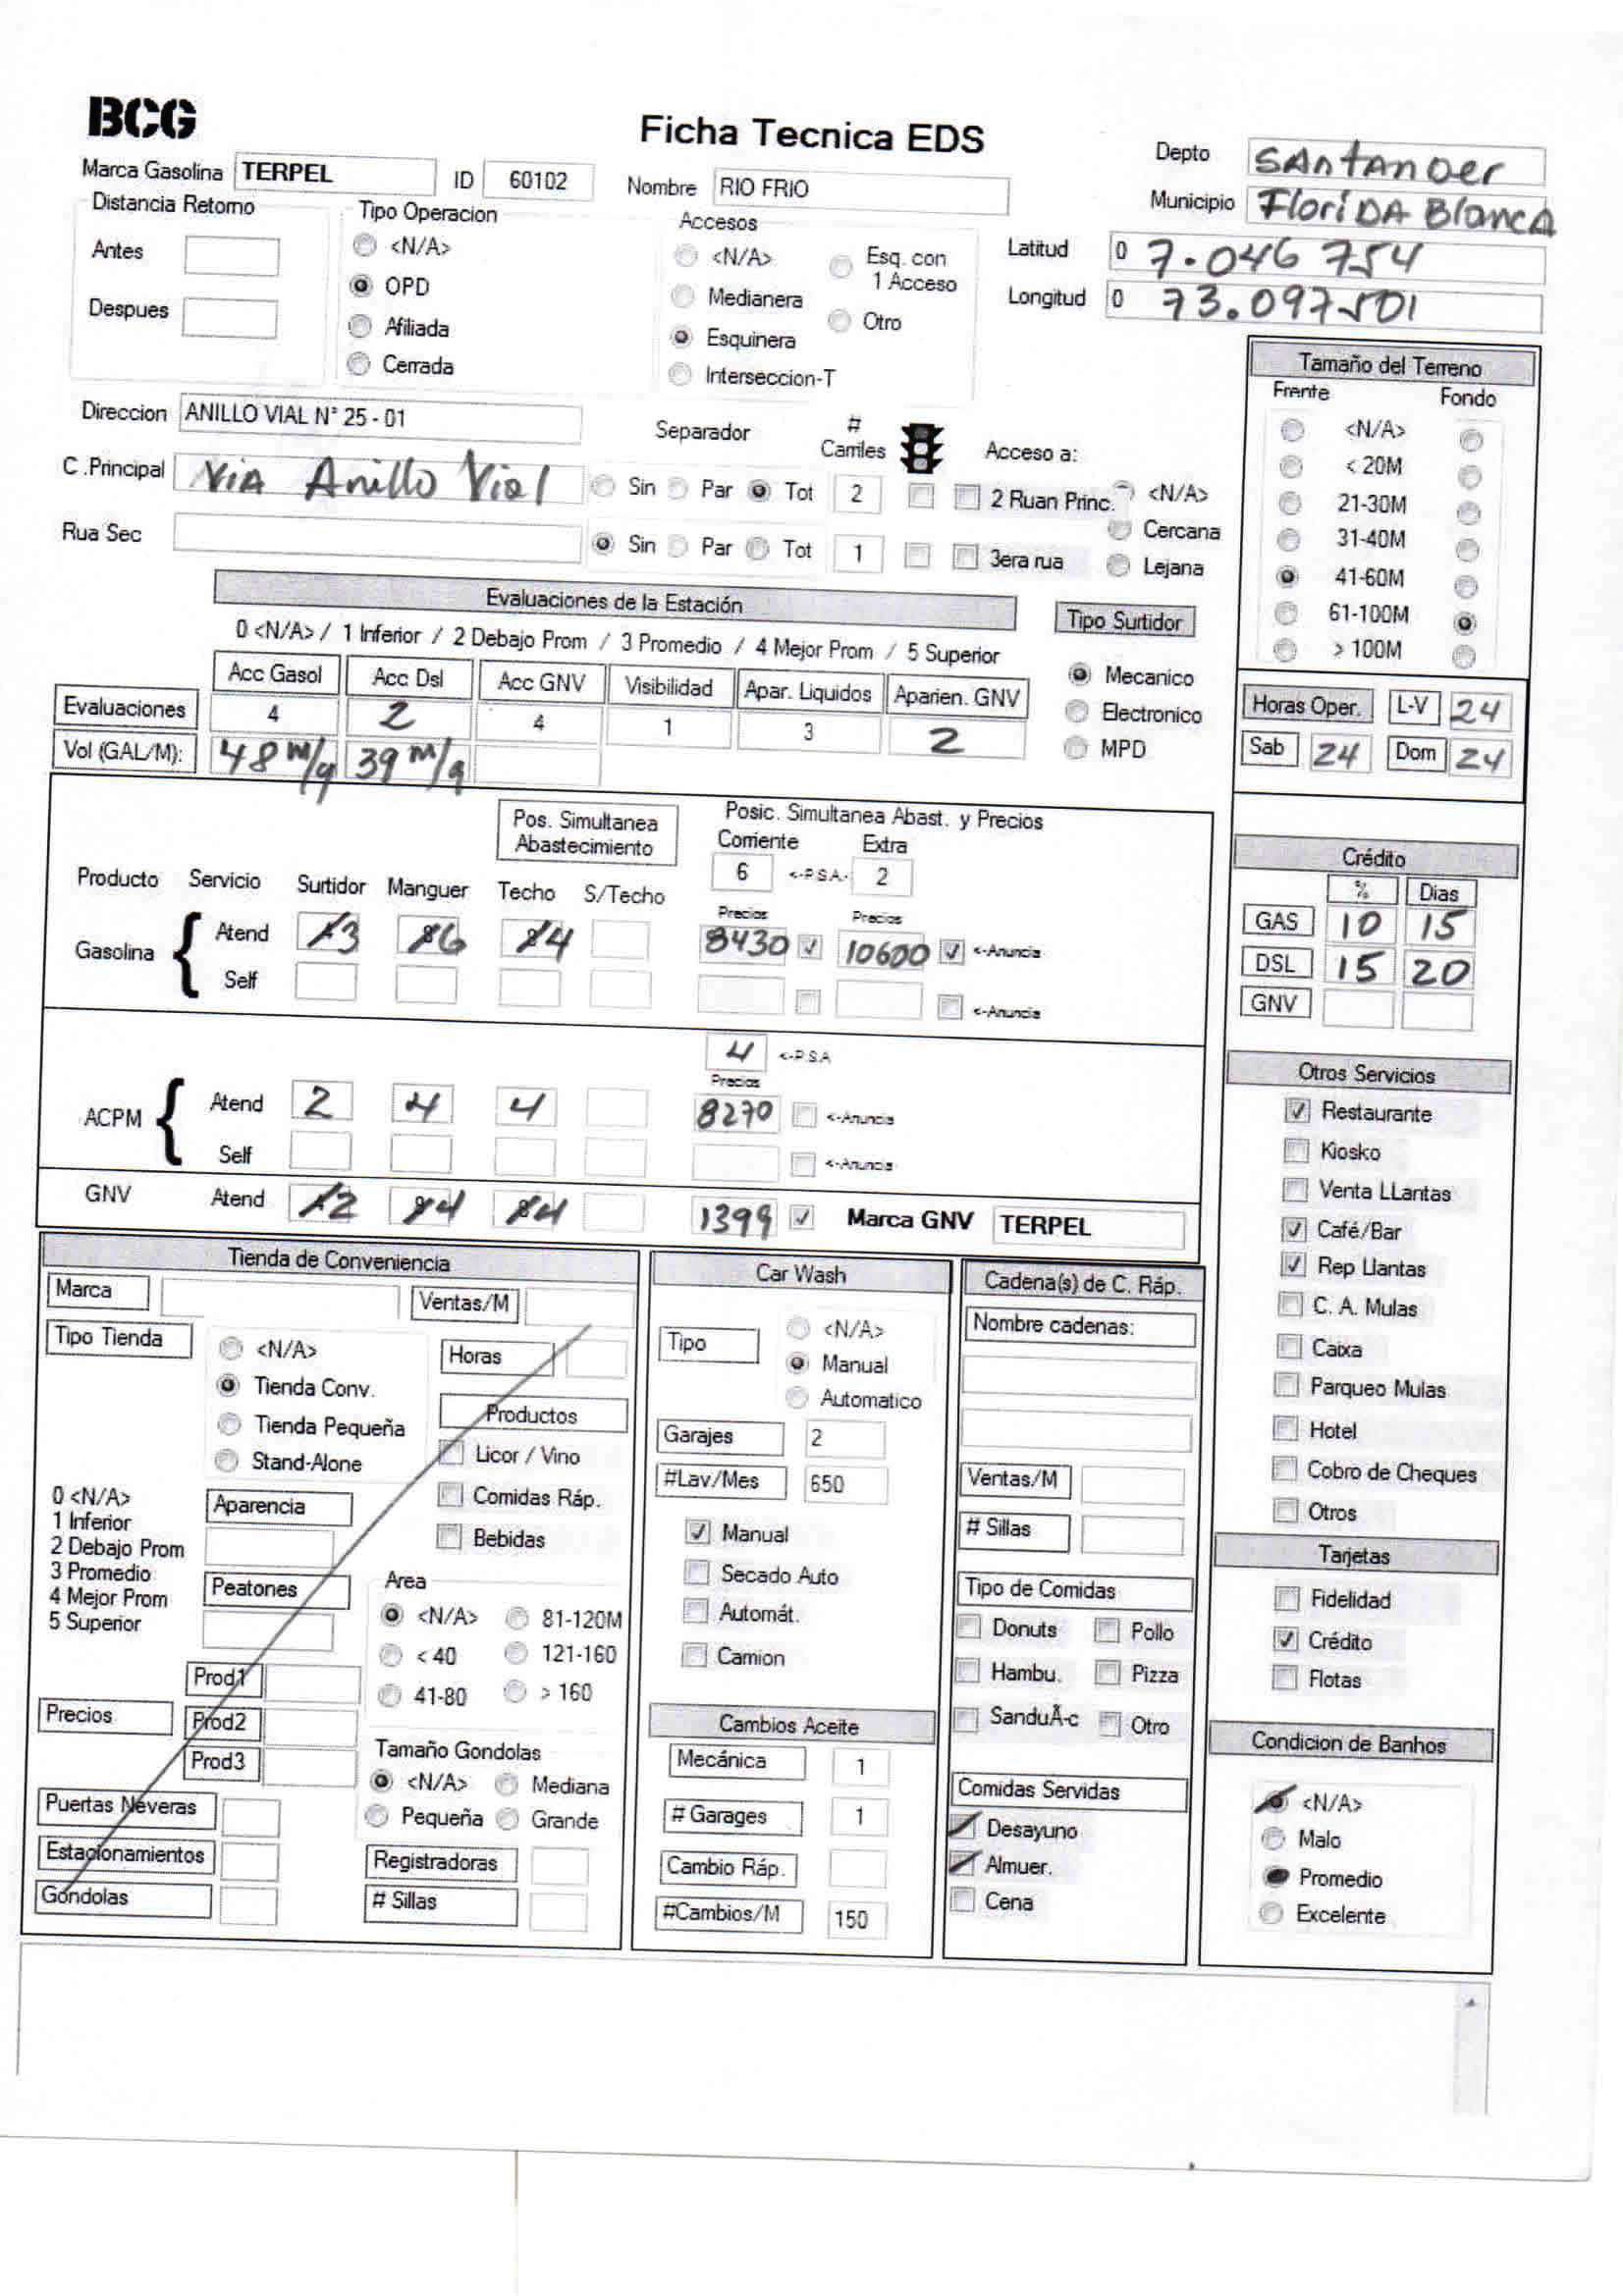 BCG
Ficha Tecnica EDS
Marca Gasolina TERPEL ID 60102 Nombre RIO FRIO
Depto SAntAnDer
Municipio FloriDA BlancA
Distancia Retorno
Antes
Despues
Tipo Operacion
<N/A>
OPD
Afiliada
Cerrada
Accesos
<N/A> Esq. con 1 Acceso
Medianera
Otro
Esquinera
Interseccion-T
Latitud 0 7.046 754
Longitud 0 73.097501
Direccion ANILLO VIAL N° 25 - 01
Separador # Carriles Acceso a:
C .Principal ViA Anillo Vial Sin Par Tot 2 2 Ruan Princ. <N/A>
Cercana
Rua Sec Sin Par Tot 1 3era rua Lejana
Tamaño del Terreno
Frente Fondo
<N/A>
< 20M
21-30M
31-40M
41-60M
61-100M
> 100M
Evaluaciones de la Estación
0 <N/A> / 1 Inferior / 2 Debajo Prom / 3 Promedio / 4 Mejor Prom / 5 Superior
Acc Gasol Acc Dsl Acc GNV Visibilidad Apar. Liquidos Aparien. GNV
Evaluaciones 4 2 4 1 3 2
Vol (GAL/M): 48 m/g 39 m/g
Tipo Surtidor
Mecanico
Electronico
MPD
Horas Oper. L-V 24
Sab 24 Dom 24
Pos. Simultanea Abastecimiento
Posic. Simultanea Abast. y Precios
Corriente Extra
6 <-P.S.A.- 2
Producto Servicio Surtidor Manguer Techo S/Techo
Precios Precios
Gasolina Atend 3 6 4 8430 10600 <-Anuncia
Self <-Anuncia
4 <-P.S.A
Precios
ACPM Atend 2 4 4 8270 <-Anuncia
Self <-Anuncia
GNV Atend 2 4 4 1399 Marca GNV TERPEL
Crédito
% Dias
GAS 10 15
DSL 15 20
GNV
Otros Servicios
Restaurante
Kiosko
Venta LLantas
Café/Bar
Rep Llantas
C. A. Mulas
Caixa
Parqueo Mulas
Hotel
Cobro de Cheques
Otros
Tarjetas
Fidelidad
Crédito
Flotas
Condicion de Banhos
<N/A>
Malo
Promedio
Excelente
Tienda de Conveniencia
Marca Ventas/M
Tipo Tienda
<N/A>
Tienda Conv.
Tienda Pequeña
Stand-Alone
Horas
Productos
Licor / Vino
Comidas Ráp.
Bebidas
0 <N/A>
1 Inferior
2 Debajo Prom
3 Promedio
4 Mejor Prom
5 Superior
Aparencia
Peatones
Area
<N/A> 81-120M
< 40 121-160
41-80 > 160
Precios
Prod1
Prod2
Prod3
Tamaño Gondolas
<N/A> Mediana
Pequeña Grande
Puertas Neveras
Estacionamientos
Gondolas
Registradoras
# Sillas
Car Wash
Tipo
<N/A>
Manual
Automatico
Garajes 2
#Lav/Mes 650
Manual
Secado Auto
Automát.
Camion
Cambios Aceite
Mecánica 1
# Garages 1
Cambio Ráp.
#Cambios/M 150
Cadena(s) de C. Ráp.
Nombre cadenas:
Ventas/M
# Sillas
Tipo de Comidas
Donuts Pollo
Hambu. Pizza
SanduÃ-c Otro
Comidas Servidas
Desayuno
Almuer.
Cena